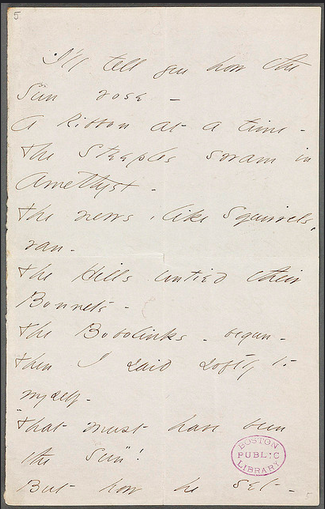 5.
I'll tell you how the
Sun rose –
A Ribbon at a time –
The Steeples swam in
Amethyst –
The news, like Squirrels,
ran –
The Hills untied their
Bonnets –
The Bobolinks – begun –
Then I said softly to
myself –
"That must have been
the Sun"!
But how he set –
BOSTON
PUBLIC
LIBRARY